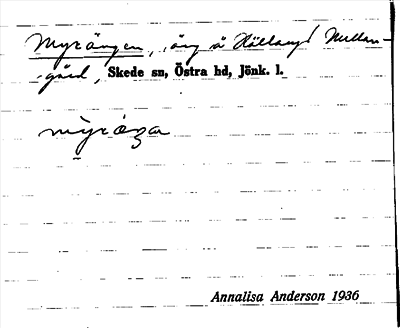 Myrängen, äng å Hölland Mellan-
gård, Skede sn, Östra hd, Jönk. l.
myräŋa
Annalisa Anderson 1936